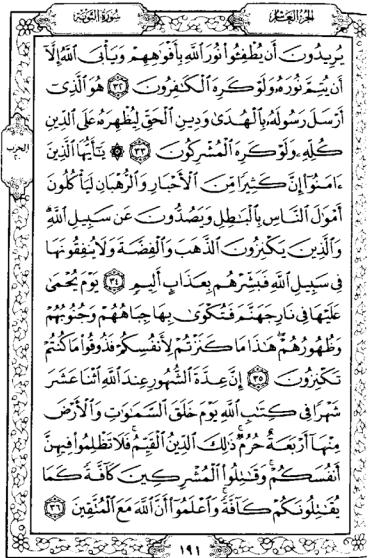 الجزء العاشر
سورة التوبة
يُرِيدُونَ أَن يُطْفِـُٔوا۟ نُورَ ٱللَّهِ بِأَفْوَٰهِهِمْ وَيَأْبَى ٱللَّهُ إِلَّآ
أَن يُتِمَّ نُورَهُۥ وَلَوْ كَرِهَ ٱلْكَٰفِرُونَ ٣٢ هُوَ ٱلَّذِىٓ
أَرْسَلَ رَسُولَهُۥ بِٱلْهُدَىٰ وَدِينِ ٱلْحَقِّ لِيُظْهِرَهُۥ عَلَى ٱلدِّينِ
كُلِّهِۦ وَلَوْ كَرِهَ ٱلْمُشْرِكُونَ ٣٣ ۞ يَٰٓأَيُّهَا ٱلَّذِينَ
ءَامَنُوٓا۟ إِنَّ كَثِيرًا مِّنَ ٱلْأَحْبَارِ وَٱلرُّهْبَانِ لَيَأْكُلُونَ
أَمْوَٰلَ ٱلنَّاسِ بِٱلْبَٰطِلِ وَيَصُدُّونَ عَن سَبِيلِ ٱللَّهِ ۗ
وَٱلَّذِينَ يَكْنِزُونَ ٱلذَّهَبَ وَٱلْفِضَّةَ وَلَا يُنفِقُونَهَا
فِى سَبِيلِ ٱللَّهِ فَبَشِّرْهُم بِعَذَابٍ أَلِيمٍ ٣٤ يَوْمَ يُحْمَىٰ
عَلَيْهَا فِى نَارِ جَهَنَّمَ فَتُكْوَىٰ بِهَا جِبَاهُهُمْ وَجُنُوبُهُمْ
وَظُهُورُهُمْ ۖ هَٰذَا مَا كَنَزْتُمْ لِأَنفُسِكُمْ فَذُوقُوا۟ مَا كُنتُمْ
تَكْنِزُونَ ٣٥ إِنَّ عِدَّةَ ٱلشُّهُورِ عِندَ ٱللَّهِ ٱثْنَا عَشَرَ
شَهْرًا فِى كِتَٰبِ ٱللَّهِ يَوْمَ خَلَقَ ٱلسَّمَٰوَٰتِ وَٱلْأَرْضَ
مِنْهَآ أَرْبَعَةٌ حُرُمٌ ۚ ذَٰلِكَ ٱلدِّينُ ٱلْقَيِّمُ ۚ فَلَا تَظْلِمُوا۟ فِيهِنَّ
أَنفُسَكُمْ ۚ وَقَٰتِلُوا۟ ٱلْمُشْرِكِينَ كَآفَّةً كَمَا
يُقَٰتِلُونَكُمْ كَآفَّةً ۚ وَٱعْلَمُوٓا۟ أَنَّ ٱللَّهَ مَعَ ٱلْمُتَّقِينَ ٣٦
الحزب
١٩١